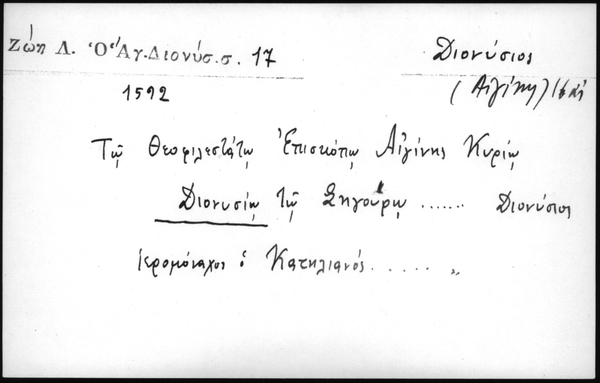 Ζώη Λ. Ὁ Ἅγ. Διονύσ. σ. 17
Διονύσιος
(Αἰγίνης)
1592
Τῷ Θεοφιλεστάτῳ Ἐπισκόπῳ Αἰγίνης Κυρίῳ
Διονυσίῳ τῷ Σηγούρῳ ....... Διονύσιος
ἱερομόναχος ὁ Κατηλιανός ...... „